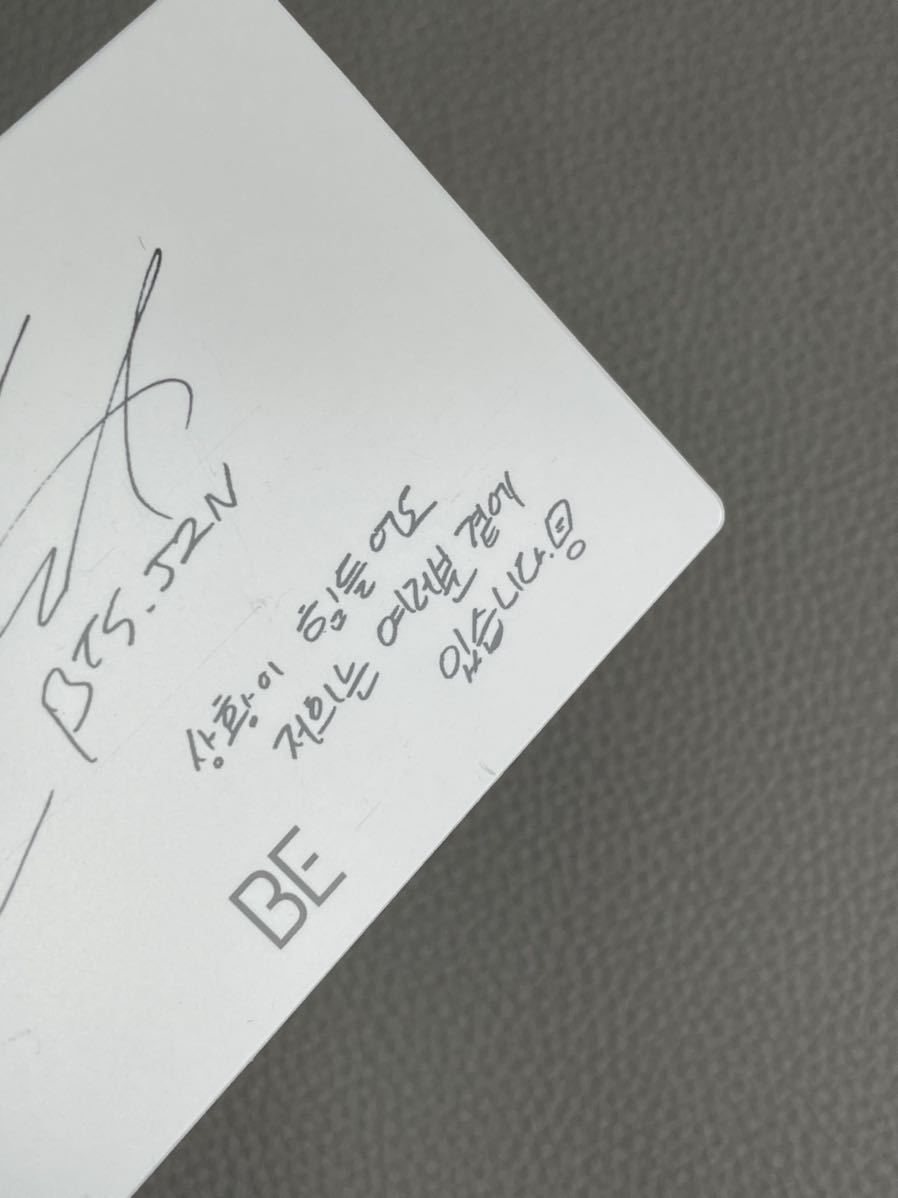 BTS. J2N
상황이 힘들어도
저희는 여러분 곁에
있습니다.
BE